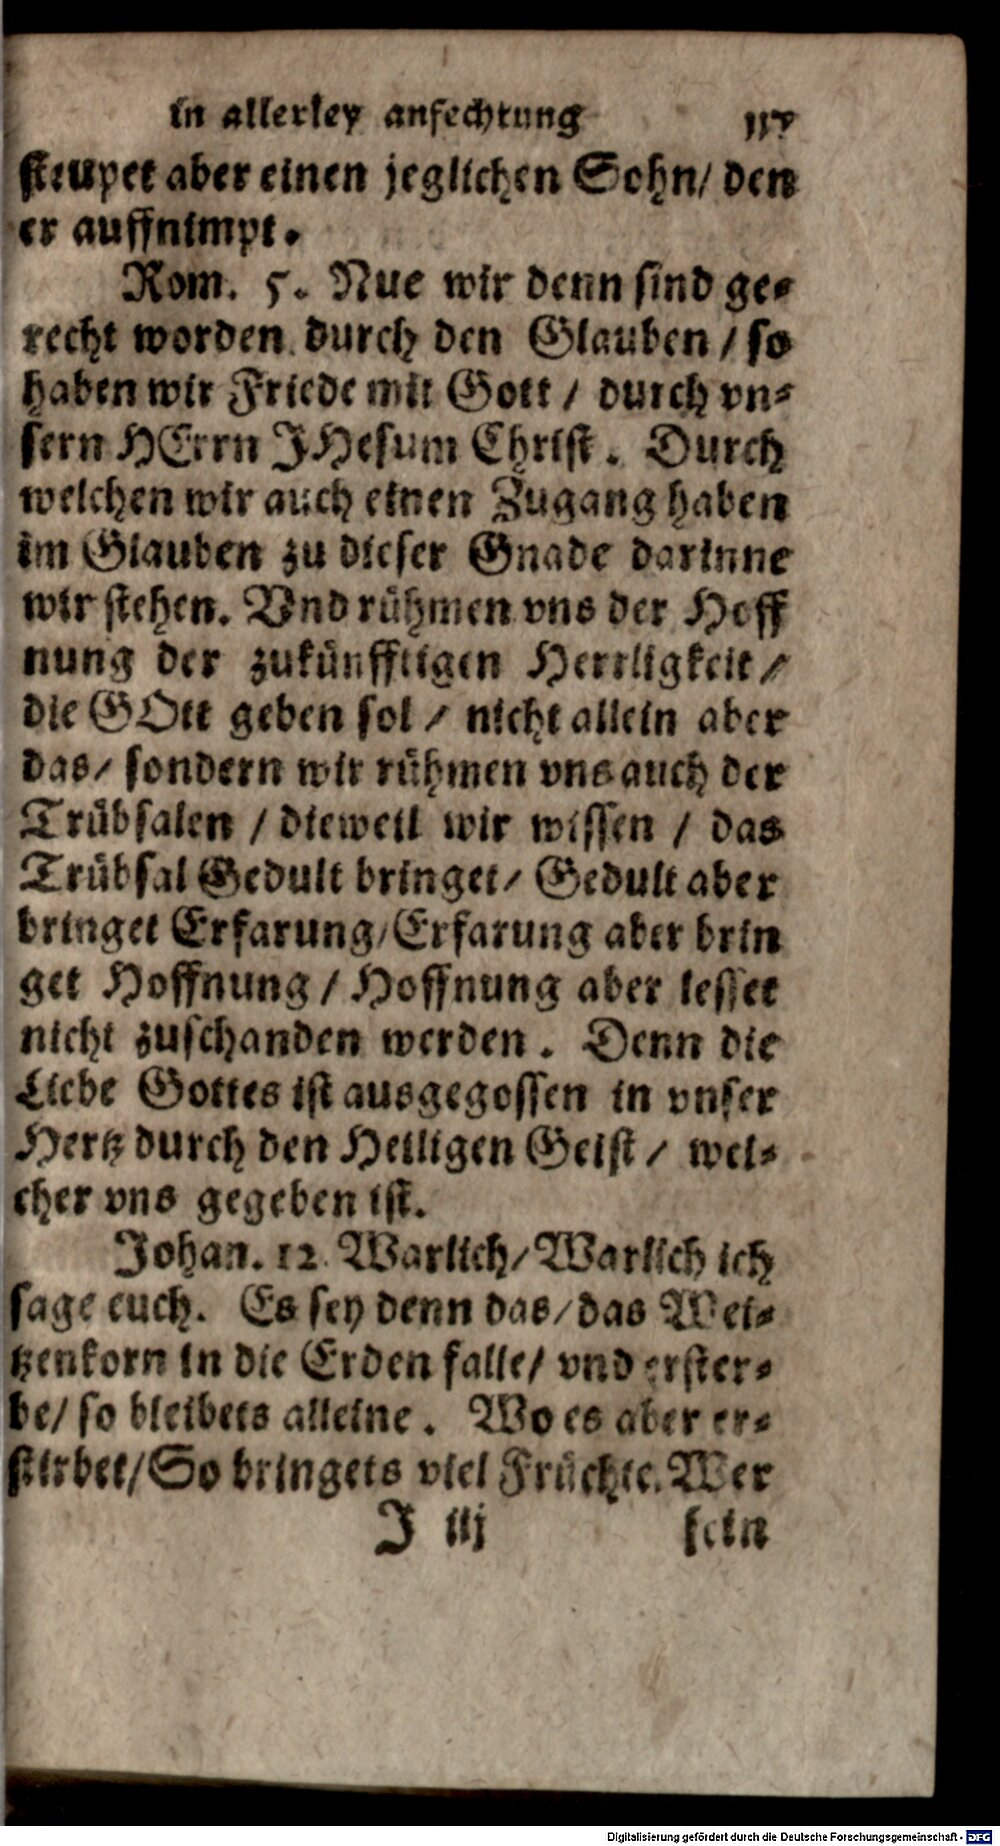 in allerley anfechtung
steupet aber einen jeglichen Sohn/ den
er auffnimpt.
Rom. 5. Nue wir denn sind ge-
recht worden durch den Glauben / so
haben wir Friede mit Gott / durch vn-
sern HErrn JHesum Christ. Durch
welchen wir auch einen Zugang haben
im Glauben zu dieser Gnade darinne
wir stehen. Vnd rühmen vns der Hoff
nung der zukünfftigen Herrligkeit /
die GOtt geben sol / nicht allein aber
das/ sondern wir rühmen vns auch der
Trübsalen / dieweil wir wissen / das
Trübsal Gedult bringet/ Gedult aber
bringet Erfarung/Erfarung aber brin
get Hoffnung / Hoffnung aber lesset
nicht zuschanden werden. Denn die
Liebe Gottes ist ausgegossen in vnser
Hertz durch den Heiligen Geist / wel-
cher vns gegeben ist.
Johan. 12. Warlich/Warlich ich
sage euch. Es sey denn das/das Wei-
tzenkorn in die Erden falle/ vnd erster-
be/ so bleibets alleine. Wo es aber er-
stirbet/So bringets viel Früchte. Wer
J iij sein
Digitalisierung gefördert durch die Deutsche Forschungsgemeinschaft - DFG